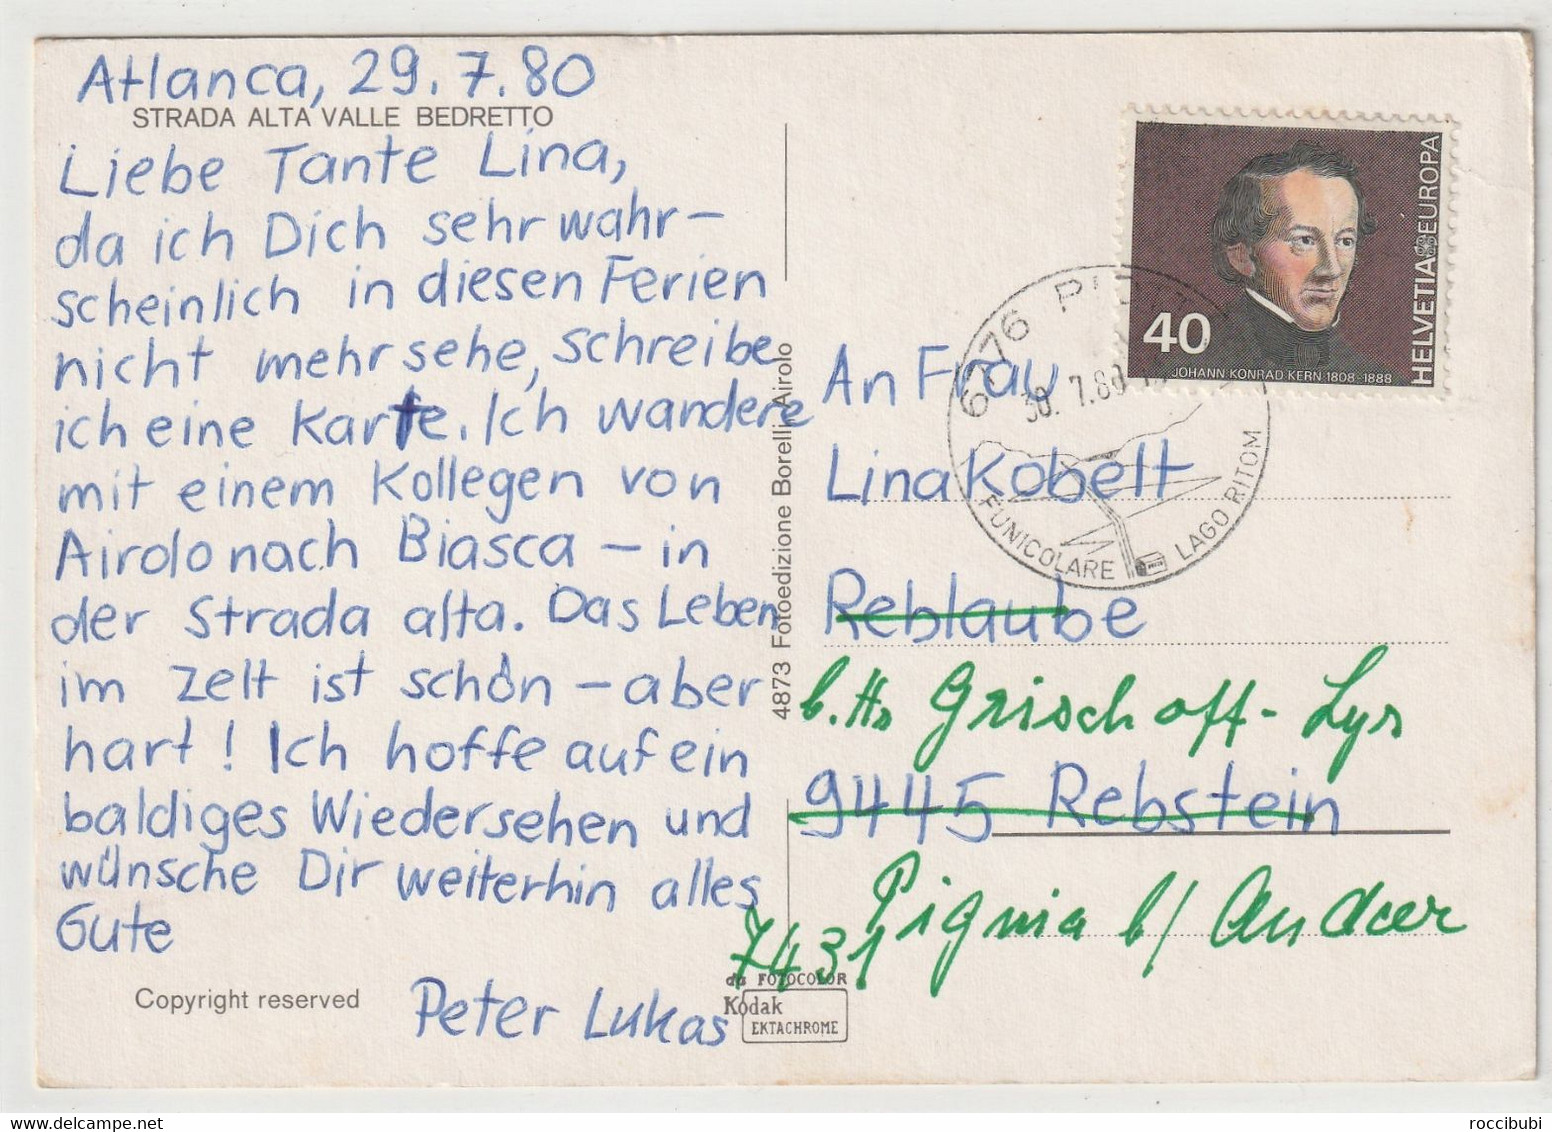 Atlanca, 29.7.80
STRADA ALTA VALLE BEDRETTO
Liebe Tante Lina,
da ich Dich sehr wahr-
scheinlich in diesen Ferien
nicht mehr sehe, schreibe
ich eine Karte. Ich wandere
mit einem Kollegen von
Airolo nach Biasca – in
der Strada alta. Das Leben
im Zelt ist schön – aber
hart! Ich hoffe auf ein
baldiges Wiedersehen und
wünsche Dir weiterhin alles
Gute
Peter Lukas
Copyright reserved
4873 Fotoedizione Borelli Airolo
da FOTOCOLOR
Kodak
EKTACHROME
HELVETIA EUROPA
40
JOHANN KONRAD KERN 1808-1888
6776
30.7.80
FUNICOLARE LAGO RITOM
An Frau
Lina Kobelt
Reblaube
b. Hs Grischoff-Lys
9445 Rebstein
Pignia b/ Andeer
7431
roccibubi